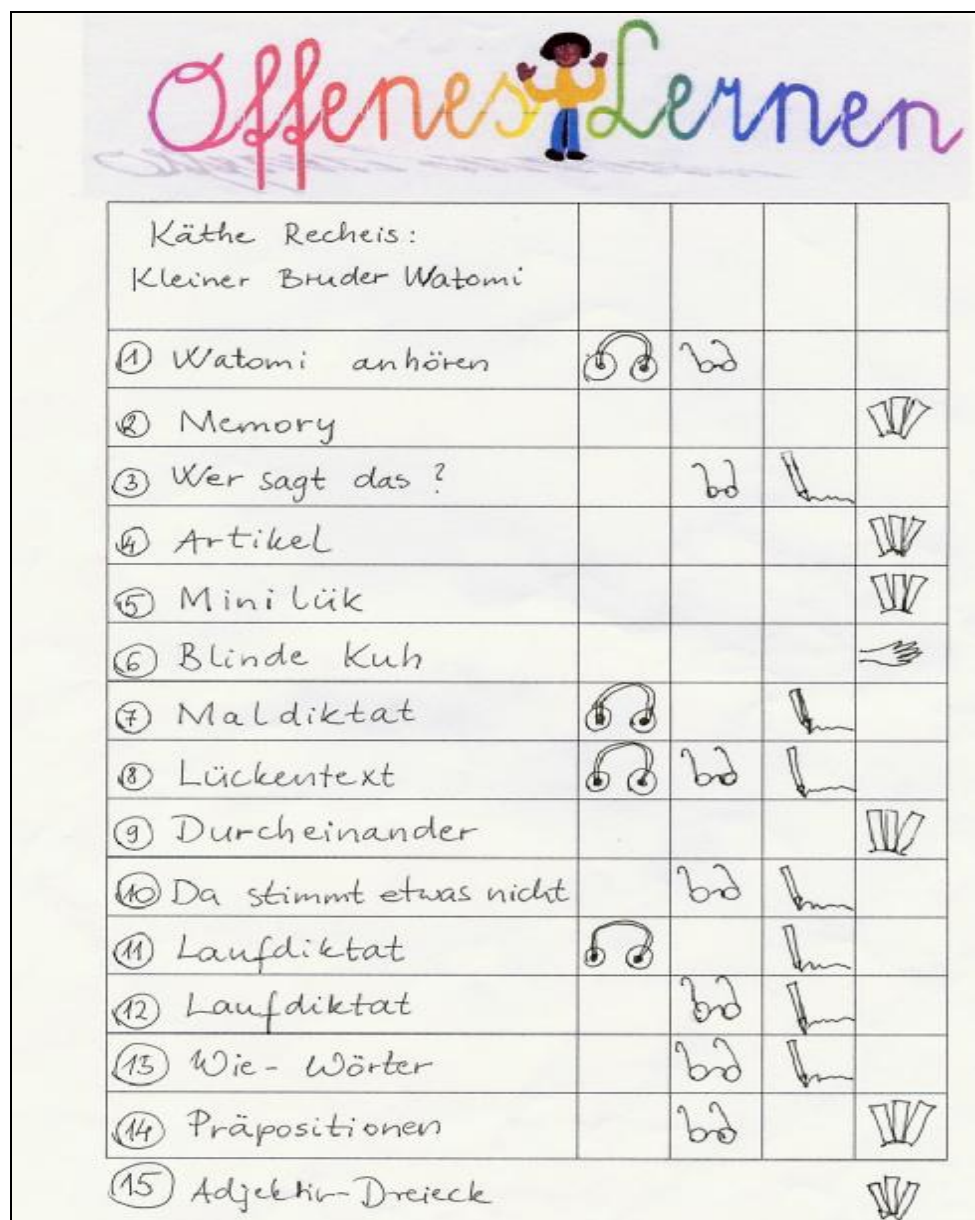 Offenes Lernen
Käthe Recheis:
Kleiner Bruder Watomi
1 Watomi anhören
2 Memory
3 Wer sagt das?
4 Artikel
5 Mini Lük
6 Blinde Kuh
7 Maldiktat
8 Lückentext
9 Durcheinander
10 Da stimmt etwas nicht
11 Laufdiktat
12 Laufdiktat
13 Wie-Wörter
14 Präpositionen
15 Adjektiv-Dreieck